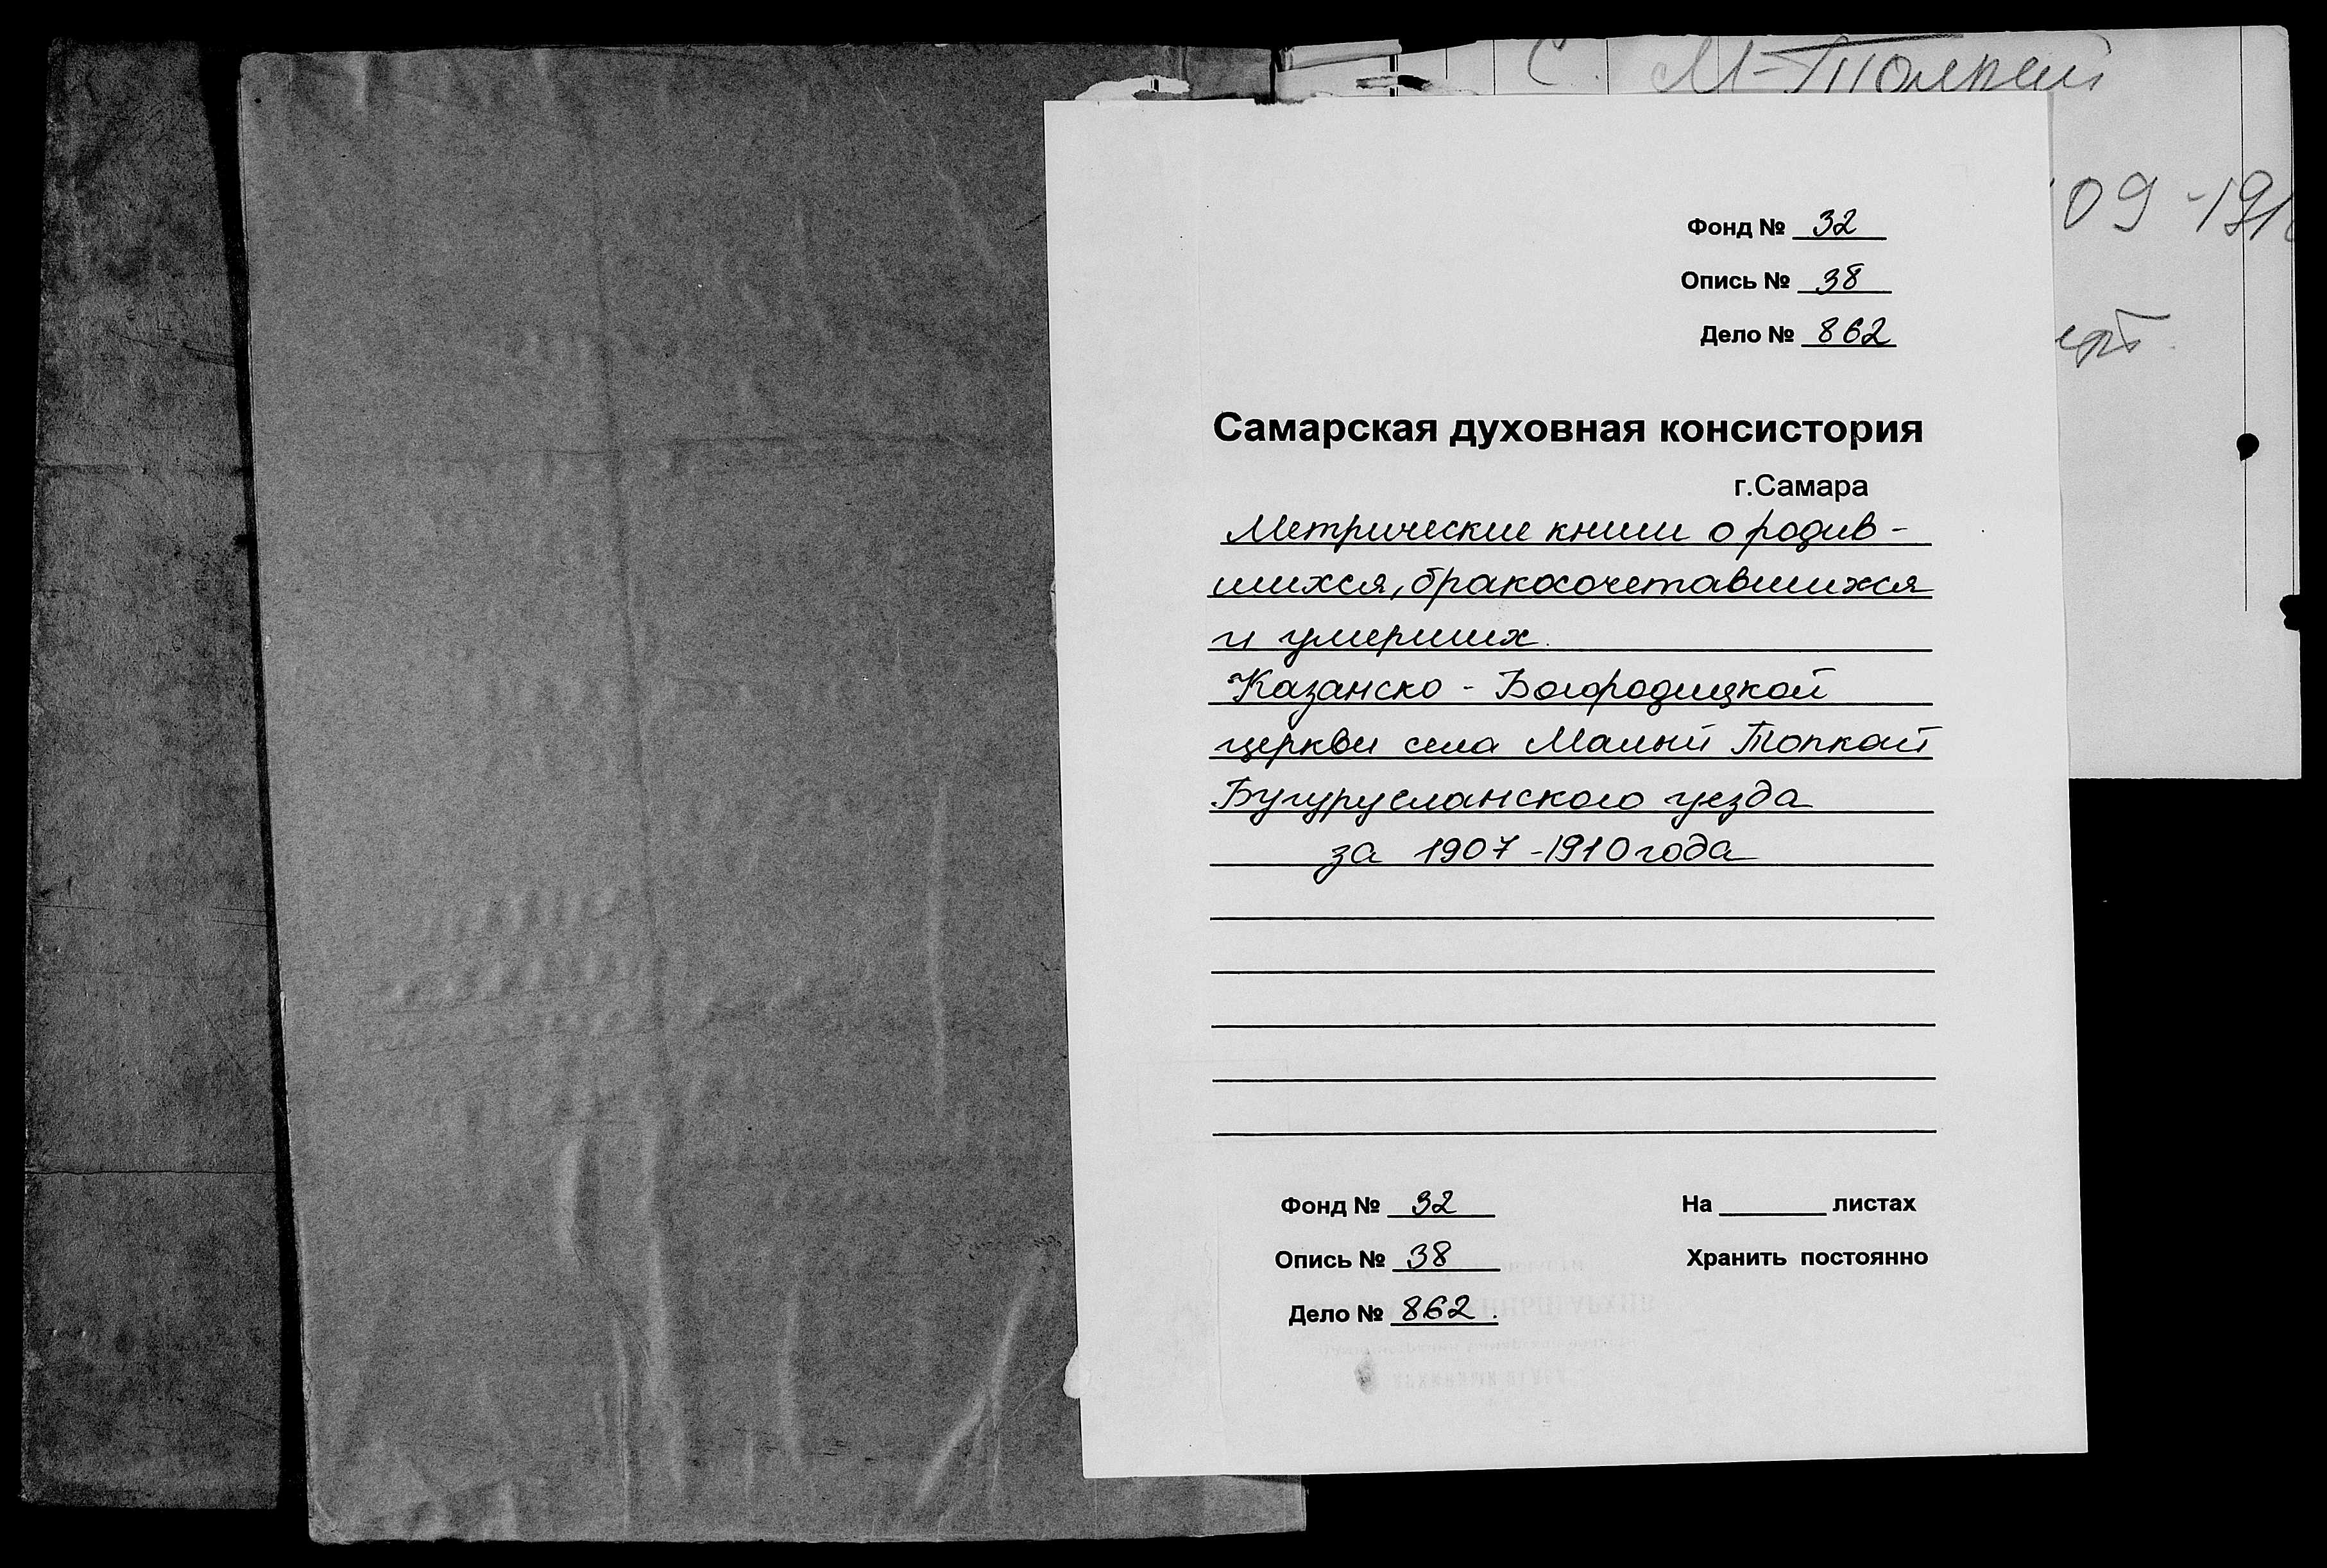 С. М-Толкай
09-191
Фонд № 32
Опись № 38
Дело № 862
Самарская духовная консистория
г.Самара
Метрические книги о родив-
шихся, бракосочетавшихся
и умерших.
Казанско-Богородицкой
церкви села Малый Толкай
Бугурусланского уезда
за 1907-1910 года
Фонд № 32
На листах
Опись № 38
Хранить постоянно
Дело № 862.